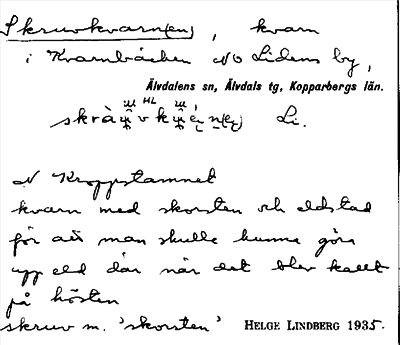 Skruvkvarn(en), kvarn
i Kvarnbäcken NO Lidens by,
Älvdalens sn, Älvdals tg, Kopparbergs län.
Li.
N Kroppstamnet
kvarn med skorsten och eldstad
för att man skulle kunna göra
upp eld där när det blev kallt
på hösten
skruv m. 'skorsten' HELGE LINDBERG 1935.